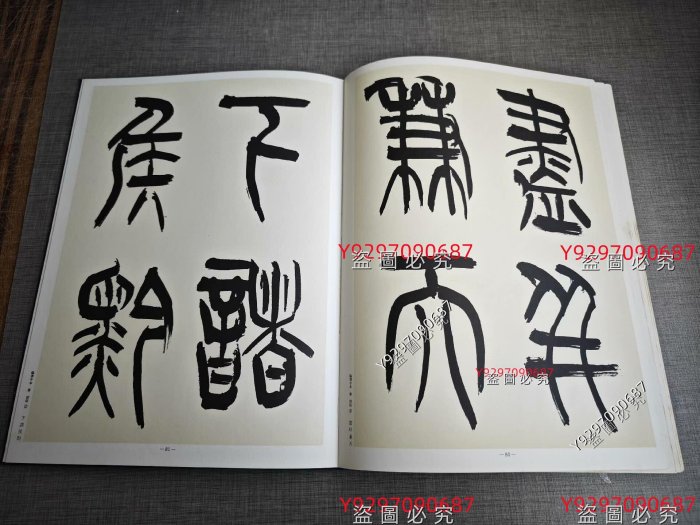 盡并
兼天
下諸
侯黔
Y9297090687
盜圖必究
Y9297090687
盜圖必究
Y9297090687
盜圖必究
Y9297090687
盜圖必究
Y9297090687
盜圖必究
Y9297090687
盜圖必究
Y9297090687
盜圖必究